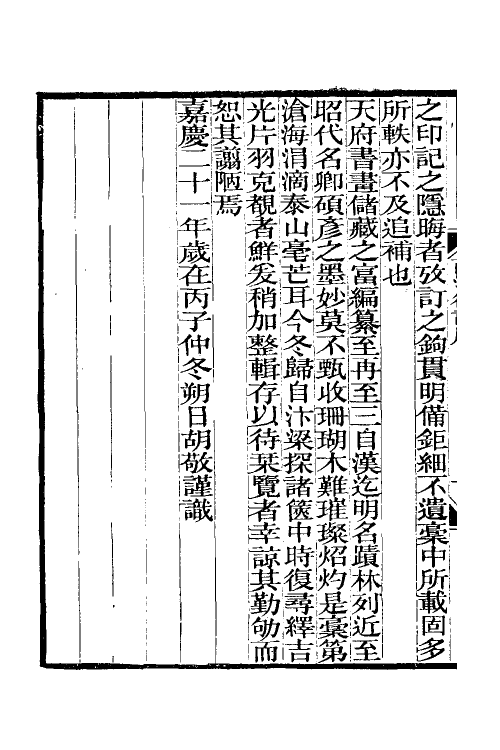 之印記之隱晦者攷訂之鉤貫明備鉅細不遺稾中所載固多
所軼亦不及追補也
天府書畫儲藏之富編纂至再至三自漢迄明名蹟林列近至
昭代名卿碩彥之墨妙莫不甄收珊瑚木難璀璨炤灼是稾第
滄海涓滴泰山毫芒耳今冬歸自汴梁探諸篋中時復尋繹吉
光片羽克覩者鮮爰稍加整輯存以待棻覽者幸諒其勤劬而
恕其謭陋焉
嘉慶二十一年歲在丙子仲冬朔日胡敬謹識